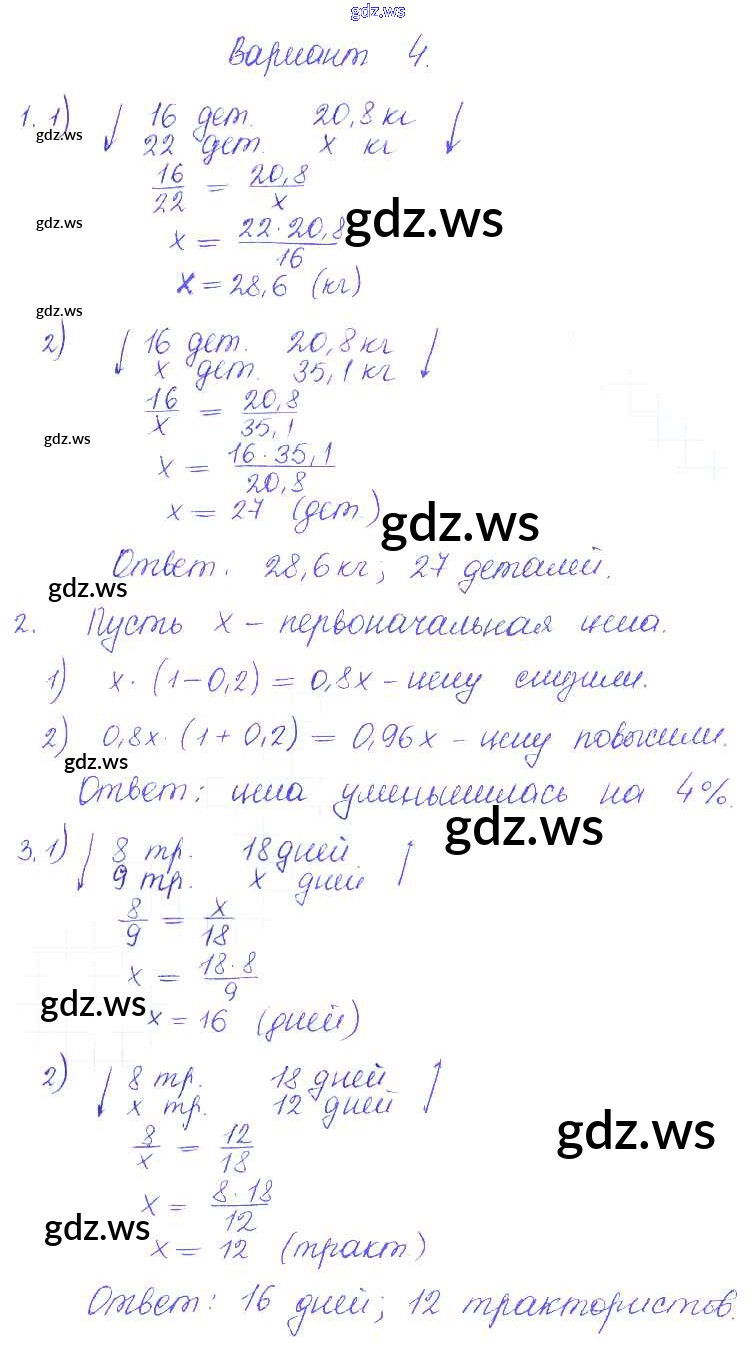 gdz.ws
Вариант 4.
1. 1) ↓ 16 дет. 20,8 кг ↓
gdz.ws
22 дет. x кг
16/22 = 20,8/x
gdz.ws
gdz.ws
x = 22·20,8/16
x = 28,6 (кг)
gdz.ws
2) ↓ 16 дет. 20,8 кг ↓
x дет. 35,1 кг
16/x = 20,8/35,1
gdz.ws
x = 16·35,1/20,8
x = 27 (дет.)
gdz.ws
Ответ. 28,6 кг; 27 деталей.
gdz.ws
2. Пусть x – первоначальная цена.
1) x · (1 – 0,2) = 0,8x – цену снизили.
2) 0,8x · (1 + 0,2) = 0,96x – цену повысили.
gdz.ws
Ответ: цена уменьшилась на 4%.
gdz.ws
3. 1) ↓ 8 тр. 18 дней ↑
9 тр. x дней
8/9 = x/18
x = 18·8/9
gdz.ws
x = 16 (дней)
2) ↓ 8 тр. 18 дней ↑
x тр. 12 дней
gdz.ws
8/x = 12/18
x = 8·18/12
gdz.ws
x = 12 (тракт.)
Ответ: 16 дней; 12 трактористов.